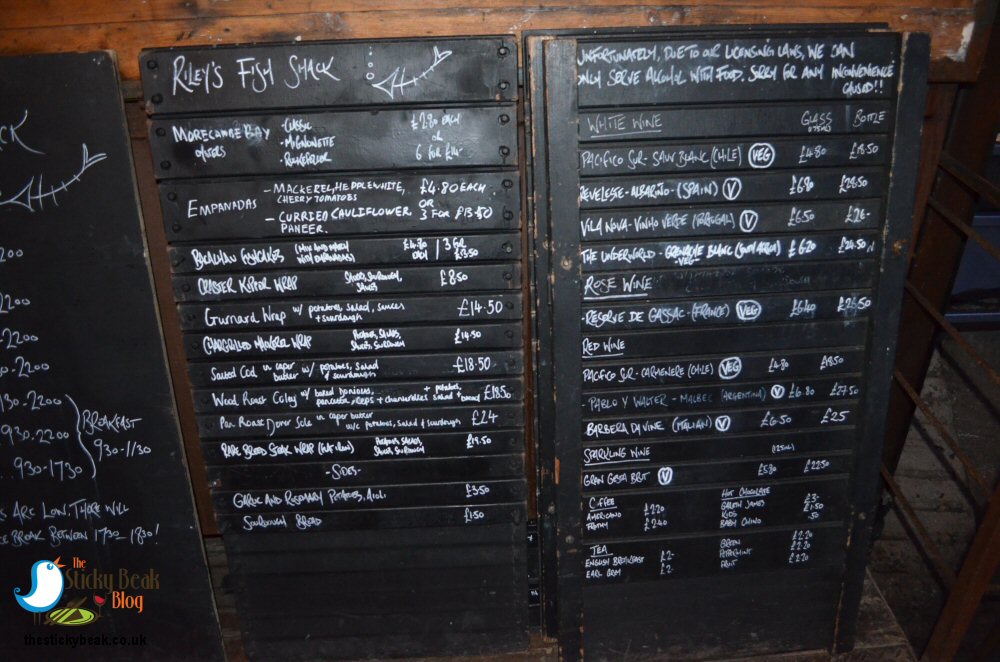 CK
200
200
200
930-2200
930-2200
930-1730
BREAKFAST
930-1130
ARE LOW, THERE WILL
BREAK BETWEEN 1730-1830!
RILEY'S FISH SHACK
MORECAMBE BAY
OYSTERS
· CLASSIC
· MIGNONETTE
· ROCKEFELLER
£2.80 EACH
OR
6 FOR £14-
EMPANADAS
- MACKEREL, HEDDLEWHITE,
CHERRY TOMATOES
- CURRIED CAULIFLOWER
PANEER.
£4.80 EACH
OR
3 FOR £13.50
£4.80
EACH
3 FOR
£13.50
CRASTER KIPPER WRAP
£8.50
Gurnard Wrap w/ potatoes, salad, sauces
+ sourdough
£14.50
CHARGRILLED MACKEREL WRAP
POTATOES, SALADS,
SAUCES, SOURDOUGH
£14.50
Salted Cod in caper
butter w/ potatoes, salad
& sourdough
£18.50
Wood Roast Coley w/ baked
+ potatoes,
salad + bread
£18.50
Pan Roast Dover Sole in caper butter
w/ potatoes, salad & sourdough
£24
RARE BREED STEAK WRAP
POTATOES, SALADS,
SAUCES, SOURDOUGH
-SIDES-
GARLIC AND ROSEMARY POTATOES, AIOLI
£3.50
SOURDOUGH BREAD
£1.50
UNFORTUNATELY, DUE TO OUR LICENSING LAWS, WE CAN
ONLY SERVE ALCOHOL WITH FOOD. SORRY FOR ANY INCONVENIENCE
CAUSED!!
WHITE WINE
GLASS
175MLS
BOTTLE
PACIFICO SUR - SAUV BLANC (CHILE) VEG £4.80 £18.50
- ALBARIÑO - (SPAIN) V
VILA NOVA - VINHO VERDE (PORTUGAL) V £6.50 £26-
THE UNDERWORLD - GRENACHE BLANC (SOUTH AFRICA)
VEG
£6.20 £24.50
ROSE WINE
- RESERVE DE GASSAC - (FRANCE) VEG £6.40
RED WINE
PACIFICO SUR - CARMENERE (CHILE) VEG £4.80 £18.50
- PABLO Y WALTER - MALBEC (ARGENTINA) V £6.80 £27.50
BARBERA DI VINE (ITALIAN) V £6.50 £25
SPARKLING WINE
(125ML)
GRAN GESA BRUT V £5.80 £22.50
COFFEE
AMERICANO £2.20
FROTHY £2.40
HOT CHOCOLATE £3-
£1.50
KIDS
BABY CHINO .50
TEA
ENGLISH BREAKFAST £2-
EARL GREY £2-
GREEN £2.20
PEPPERMINT £2.20
FRUIT £2.20
The
Sticky Beak
Blog
thestickybeak.co.uk